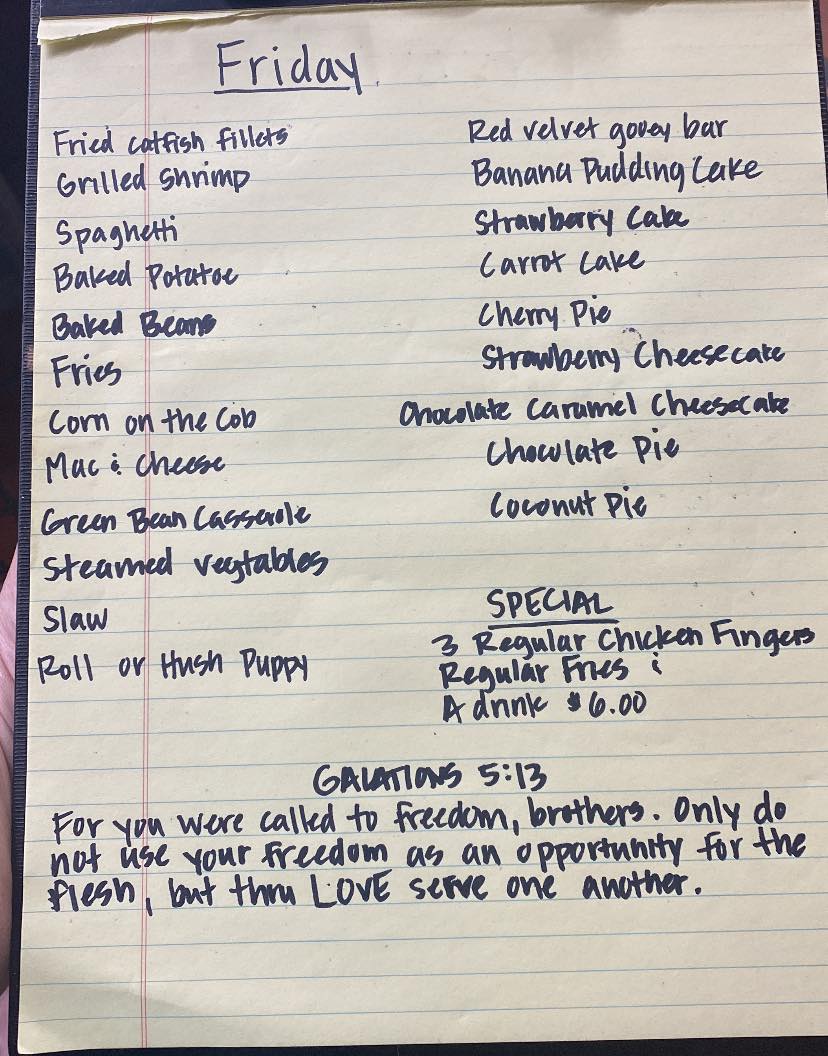 Friday
Fried catfish fillets
Grilled Shrimp
Spaghetti
Baked Potatoe
Baked Beans
Fries
Corn on the Cob
Mac & Cheese
Green Bean Casserole
Steamed vegtables
Slaw
Roll or Hush Puppy
Red velvet gooey bar
Banana Pudding Cake
Strawberry Cake
Carrot Cake
Cherry Pie
Strawberry Cheesecake
Chocolate Caramel Cheesecake
Chocolate Pie
Coconut Pie
SPECIAL
3 Regular Chicken Fingers
Regular Fries &
A drink $6.00
GALATIONS 5:13
For you were called to freedom, brothers. Only do
not use your freedom as an opportunity for the
flesh, but thru LOVE serve one another.